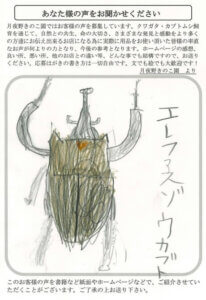 あなた様の声をお聞かせください
月夜野きのこ園ではお客様の声を募集しています。クワガタ・カブトムシ飼
育を通じて、自然との共生、命の大切さ、さまざまな発見と感動をより多く
の方達にお伝え出来るお店になる為に実際に用品をお使い頂いた皆様の率直
なお声が何よりの力となり、今後の参考となります。ホームページの感想、
良い所、悪い所、他のお店との違い等、どんな事でも結構ですので、お送り
ください。応募はがきの書き方は一切自由です。文でも絵でも大歓迎です!
月夜野きのこ園 より
エレファスゾウカブト
このお客様の声を書籍など紙面やホームページなどで、ご紹介させてい
ただくことがございます。ご了承の上お送り下さい。